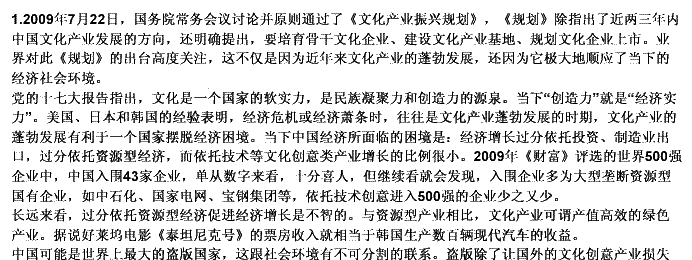 1.2009年7月22日，国务院常务会议讨论并原则通过了《文化产业振兴规划》，《规划》除指出了近两三年内
中国文化产业发展的方向，还明确提出，要培育骨干文化企业、建设文化产业基地、规划文化企业上市。业
界对此《规划》的出台高度关注，这不仅是因为近年来文化产业的蓬勃发展，还因为它极大地顺应了当下的
经济社会环境。
党的十七大报告指出，文化是一个国家的软实力，是民族凝聚力和创造力的源泉。当下“创造力”就是“经济实
力”。美国、日本和韩国的经验表明，经济危机或经济萧条时，往往是文化产业蓬勃发展的时期，文化产业的
蓬勃发展有利于一个国家摆脱经济困境。当下中国经济所面临的困境是：经济增长过分依托投资、制造业出
口，过分依托资源型经济，而依托技术等文化创意类产业增长的比例很小。2009年《财富》评选的世界500强
企业中，中国入围43家企业，单从数字来看，十分喜人，但继续看就会发现，入围企业多为大型垄断资源型
国有企业，如中石化、国家电网、宝钢集团等，依托技术创意进入500强的企业少之又少。
长远来看，过分依托资源型经济促进经济增长是不智的。与资源型产业相比，文化产业可谓产值高效的绿色
产业。据说好莱坞电影《泰坦尼克号》的票房收入就相当于韩国生产数百辆现代汽车的收益。
中国可能是世界上最大的盗版国家，这跟社会环境有不可分割的联系。盗版除了让国外的文化创意产业损失